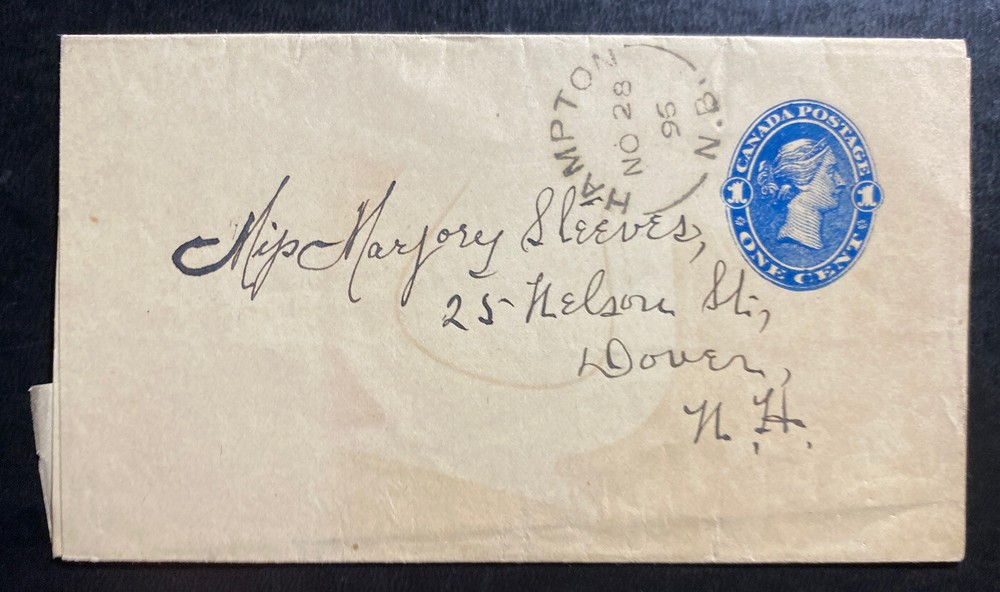 HAMPTON N.B.
NO 28
95
CANADA POSTAGE
1 1
ONE CENT
Miss Marjory Sleeves,
25 Nelson St.,
Dover,
N.H.